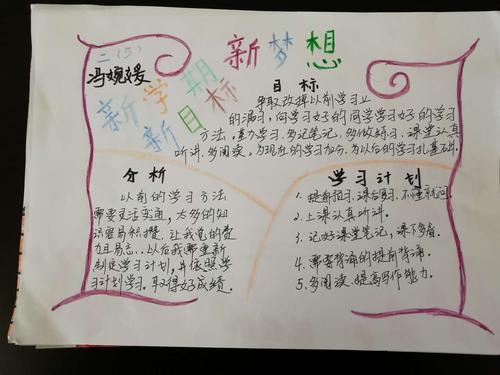 二(5)
冯婉媛
新学期
新目标
新梦想
目标
争取改掉以前学习上
的漏习,向学习好的同学学习好的学习
方法。重为学习、多记笔记,多做练习,课堂认真
听讲、多阅读。为现在的学习加分,为以后的学习扎基础。
分析
以前的学习方法
需要灵活实通,太多的知
识容易积攒,让我觉的费
力且易忘,以后我需重新
制定学习计划,并依照学
习计划学习。取得好成绩。
学习计划
1、提前预习,课后复习,不懂就问。
2、上课认真听讲。
3、记好课堂笔记,课下多看。
4、需要背诵的提前背诵。
5、多阅读、提高写作能力。